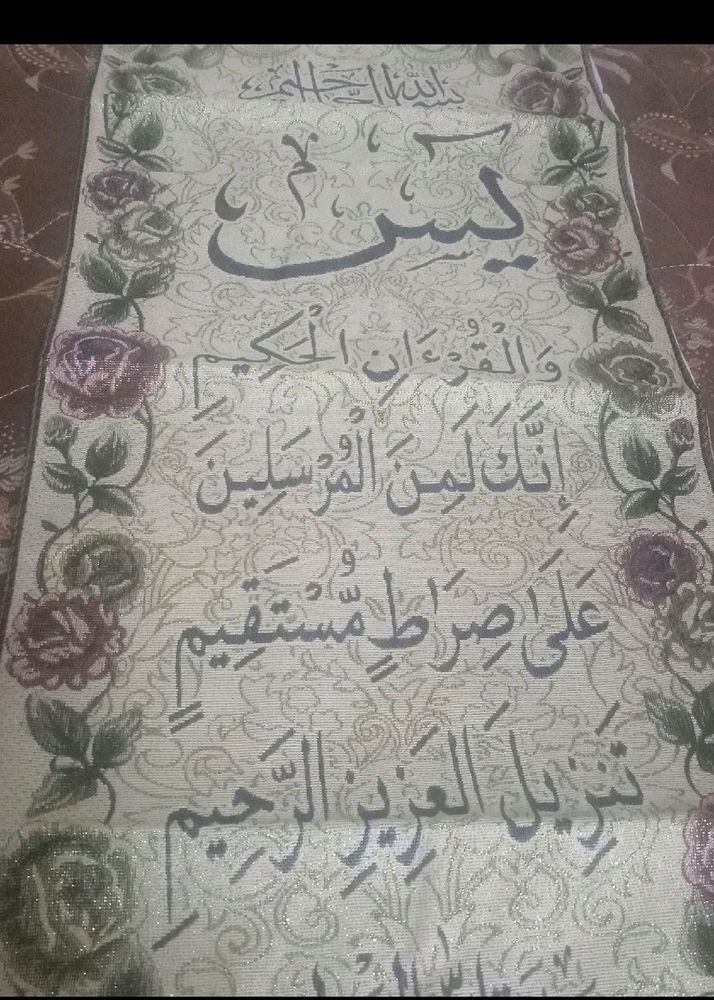 بسم الله الرحمن الرحيم
يسٓ
وَالْقُرْءَانِ الْحَكِيمِ
إِنَّكَ لَمِنَ الْمُرْسَلِينَ
عَلَىٰ صِرَاطٍ مُّسْتَقِيمٍ
تَنزِيلَ الْعَزِيزِ الرَّحِيمِ